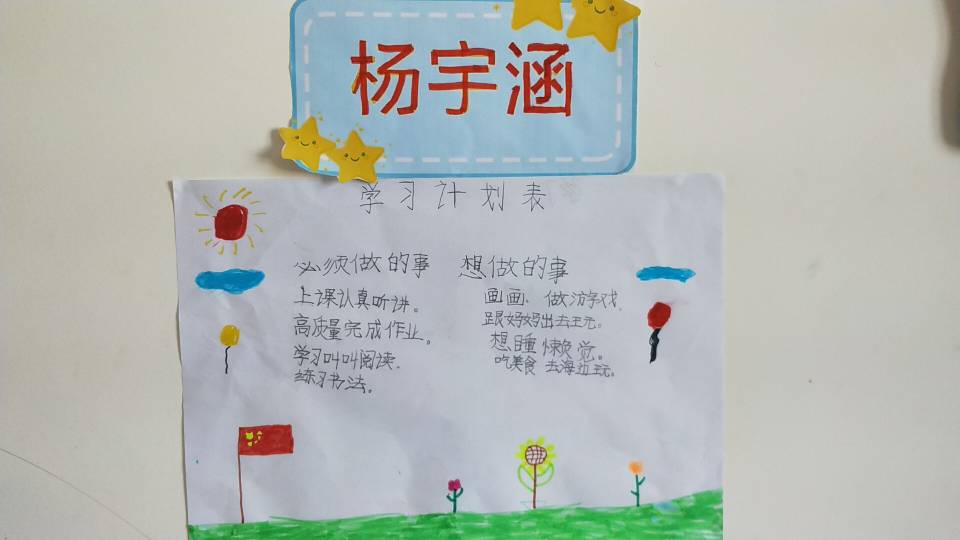 杨宇涵
学习计划表
必须做的事
上课认真听讲。
高质量完成作业。
学习叫叫阅读.
练习书法。
想做的事
画画、做游戏.
跟妈妈出去玩。
想睡懒觉。
吃美食 去海边玩。